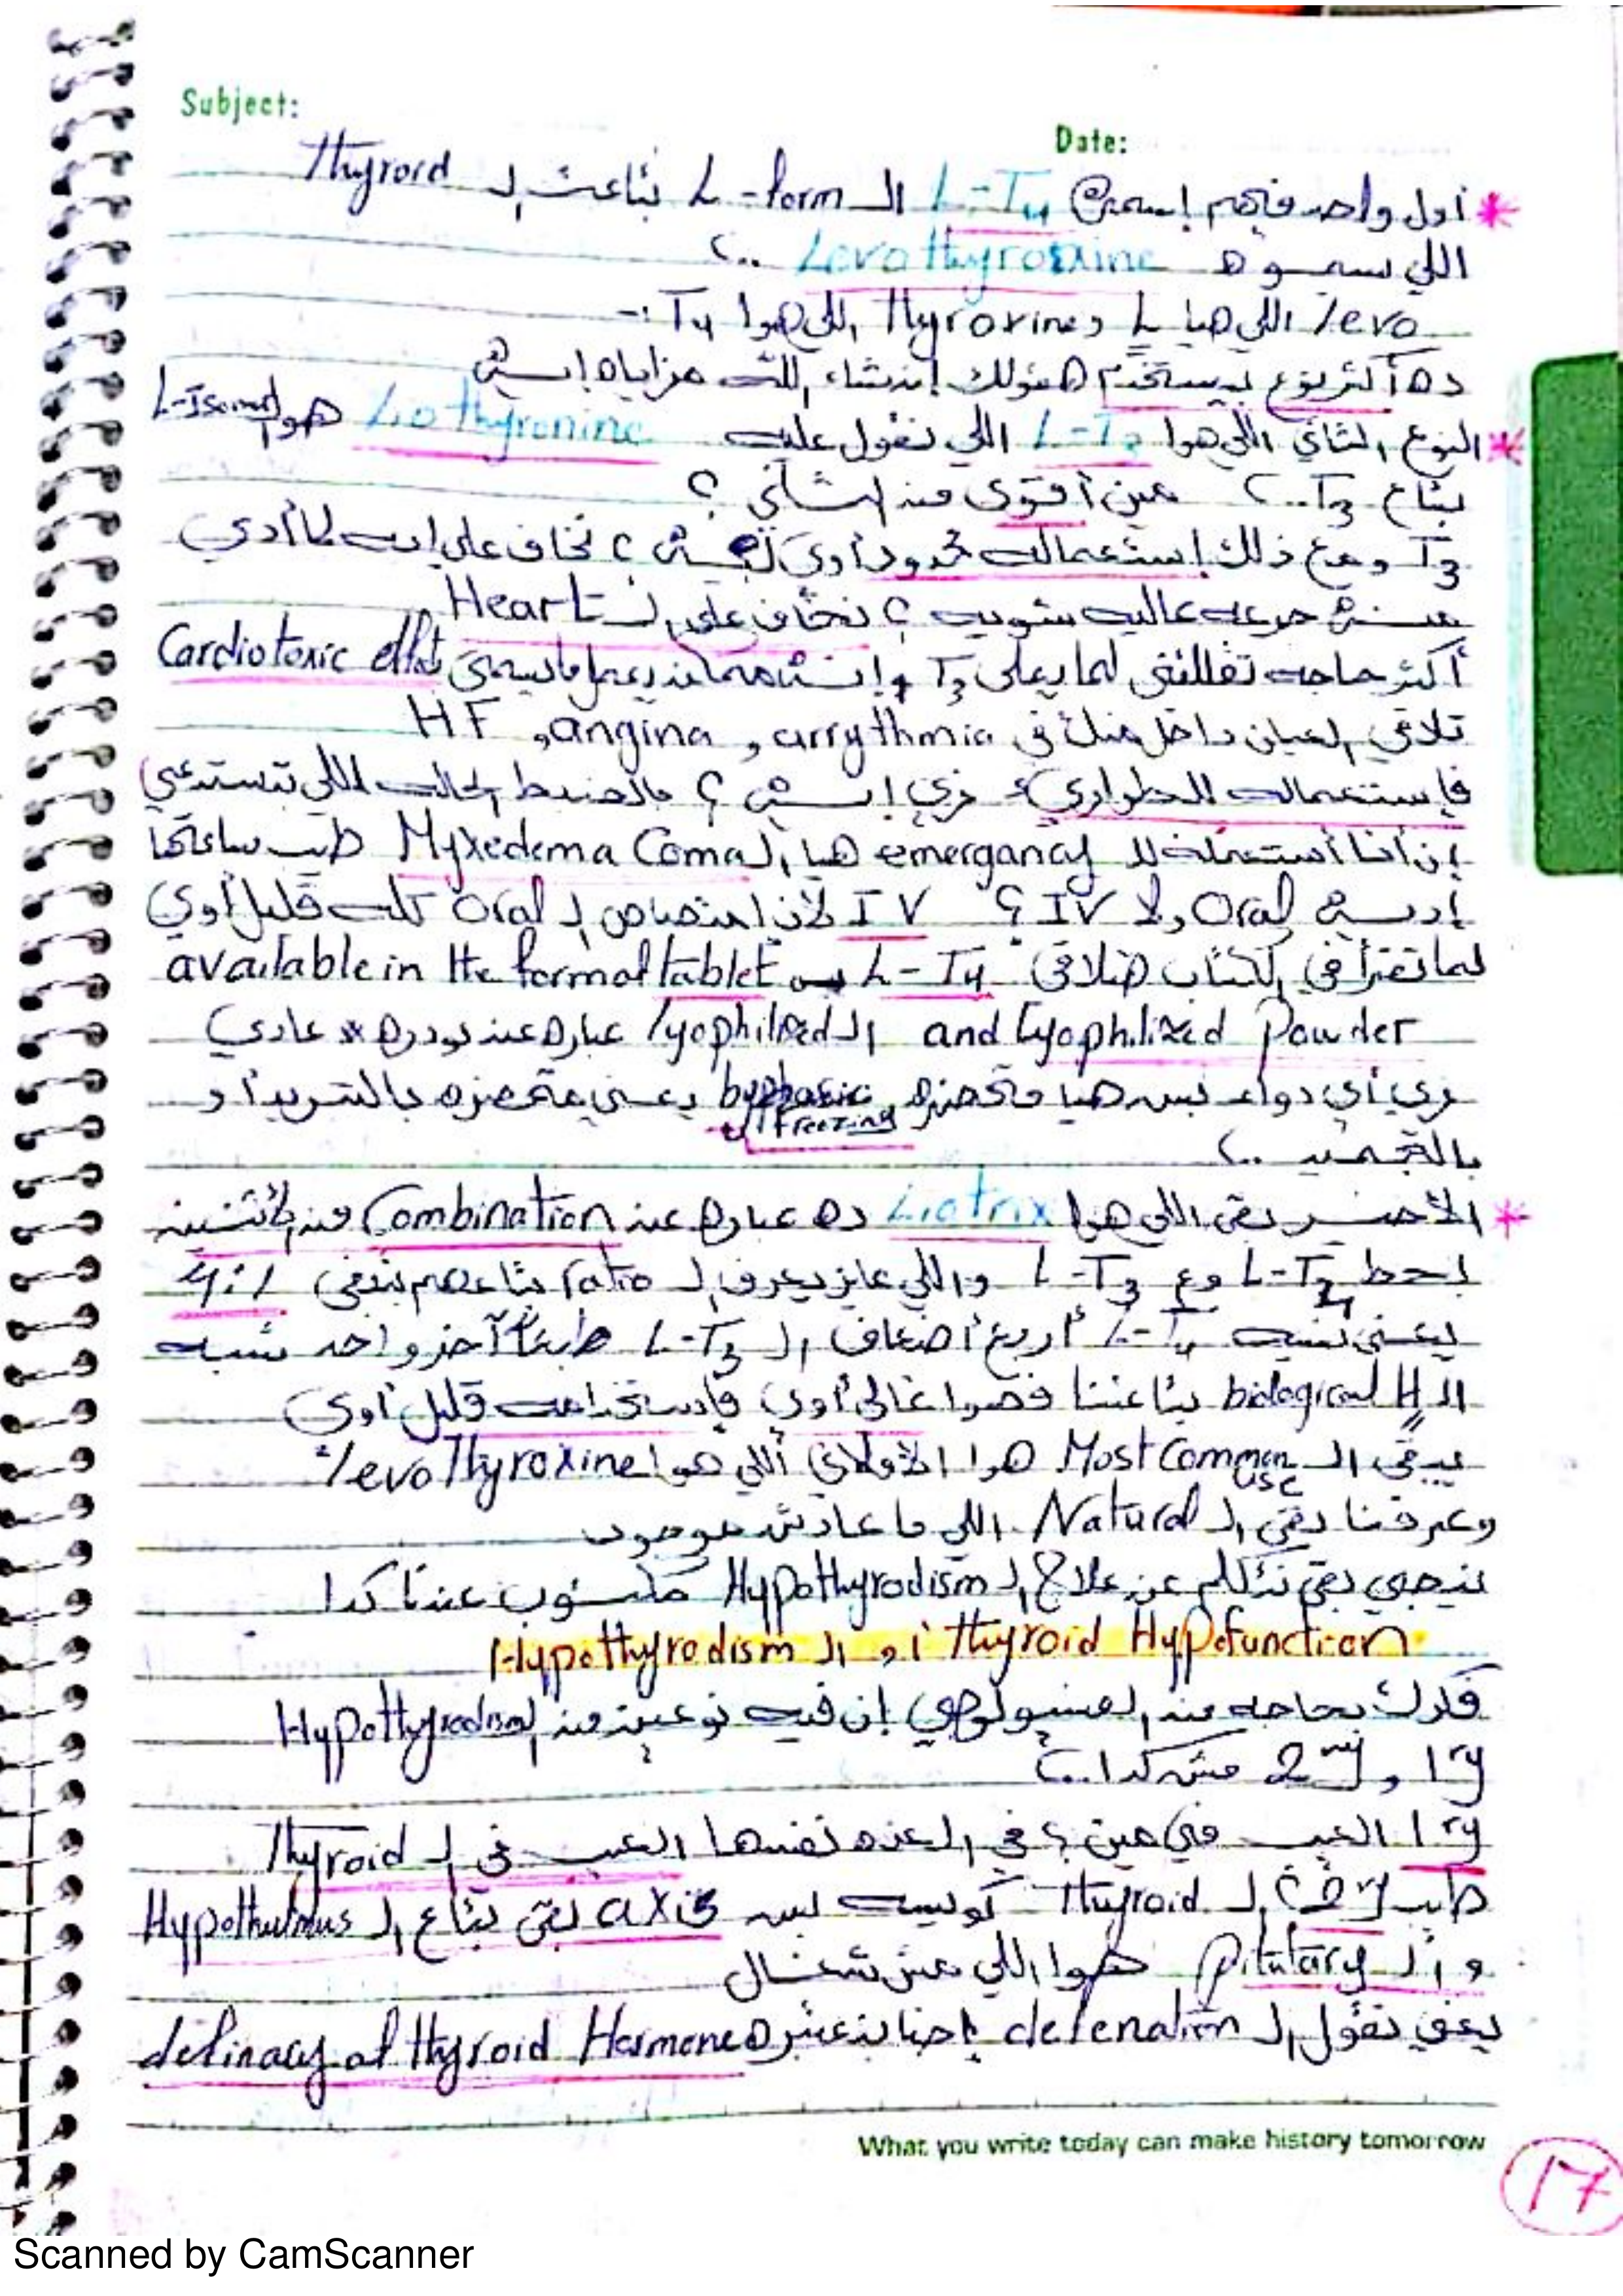 Subject:
Date:
* أول واحد فيهم إسمه L-T4 الـ L-form بتاعت الـ Thyroid
اللي سموه Levothyroxine ..؟
levo اللي هيا L و Thyroxine اللي هوا T4 :-
ده أكتر نوع بيستخدم هقولك إنشاء الله مزاياه إيش
* النوع التاني اللي هوا L-T3 اللي نقول عليه Liothyronine هوا الـ L-Isomer
بتاع T3 ..؟ مين أقوى من التاني ؟
T3 ومع ذلك إستعماله محدود أوي ليش ؟ نخاف على إيه لما أدي
جرعه عاليه شويه ؟ نخاف على الـ Heart
أكتر حاجه تقلقني لما يعلى T3 يعمل ما يسمى Cardiotoxic effect
تلاقي العيان داخل منك في arrythmia , angina , HF
فإستعماله للطوارئ زي إيش ؟ بالضبط الحاله اللي تستدعي
إن أنا أستعمله لل emergancy هيا الـ Myxedema Coma طيب ساعتها
Oral ولا IV ؟ IV لأن إمتصاص الـ Oral قليل أوي
لما تقرأ في الكتاب هتلاقي L-T4 available in the form of tablet
and Lyophilized Powder الـ lyophilized عباره عن بودره عادي
زي أي دواء بس هيا متحضره by freezing يعني متحضره بالتبريد أو
بالتجميد ..؟
* الأخير بقى اللي هوا Liotrix ده عباره عن Combination من الإتنين
احط L-T4 مع L-T3 واللي عايز يعرف الـ ratio بتاعهم بتبقى 4:1
يعني نسبه L-T4 أربع أضعاف الـ L-T3 طبعاً آخر واحد شبه
الـ biological H بتاعنا فهوا غالي أوي فإستخدامه قليل أوي
يبقى الـ Most Common use هوا الأولاني اللي هوا levothyroxine
وعرفنا بقى الـ Natural اللي ما عادش موجود
نيجي بقى نتكلم عن علاج الـ Hypothyrodism مكتوب عندنا كدا
Thyroid Hypofunction أو الـ Hypothyrodism
فكرك بحاجه من الفسيولوجي إن فيه نوعين من الـ Hypothyrodism
1ry , 2ry مش كدا ..؟
1ry العيب في مين ؟ في الغده نفسها العيب في الـ Thyroid
طيب 2ry ؟ الـ Thyroid كويسه بس axis بقى بتاع الـ Hypothulmus
و الـ Pitutary هوا اللي مش شغال
يبقى نقول الـ defenation إحنا بنعتبره definacy of thyroid Hormone
What you write today can make history tomorrow
17
Scanned by CamScanner